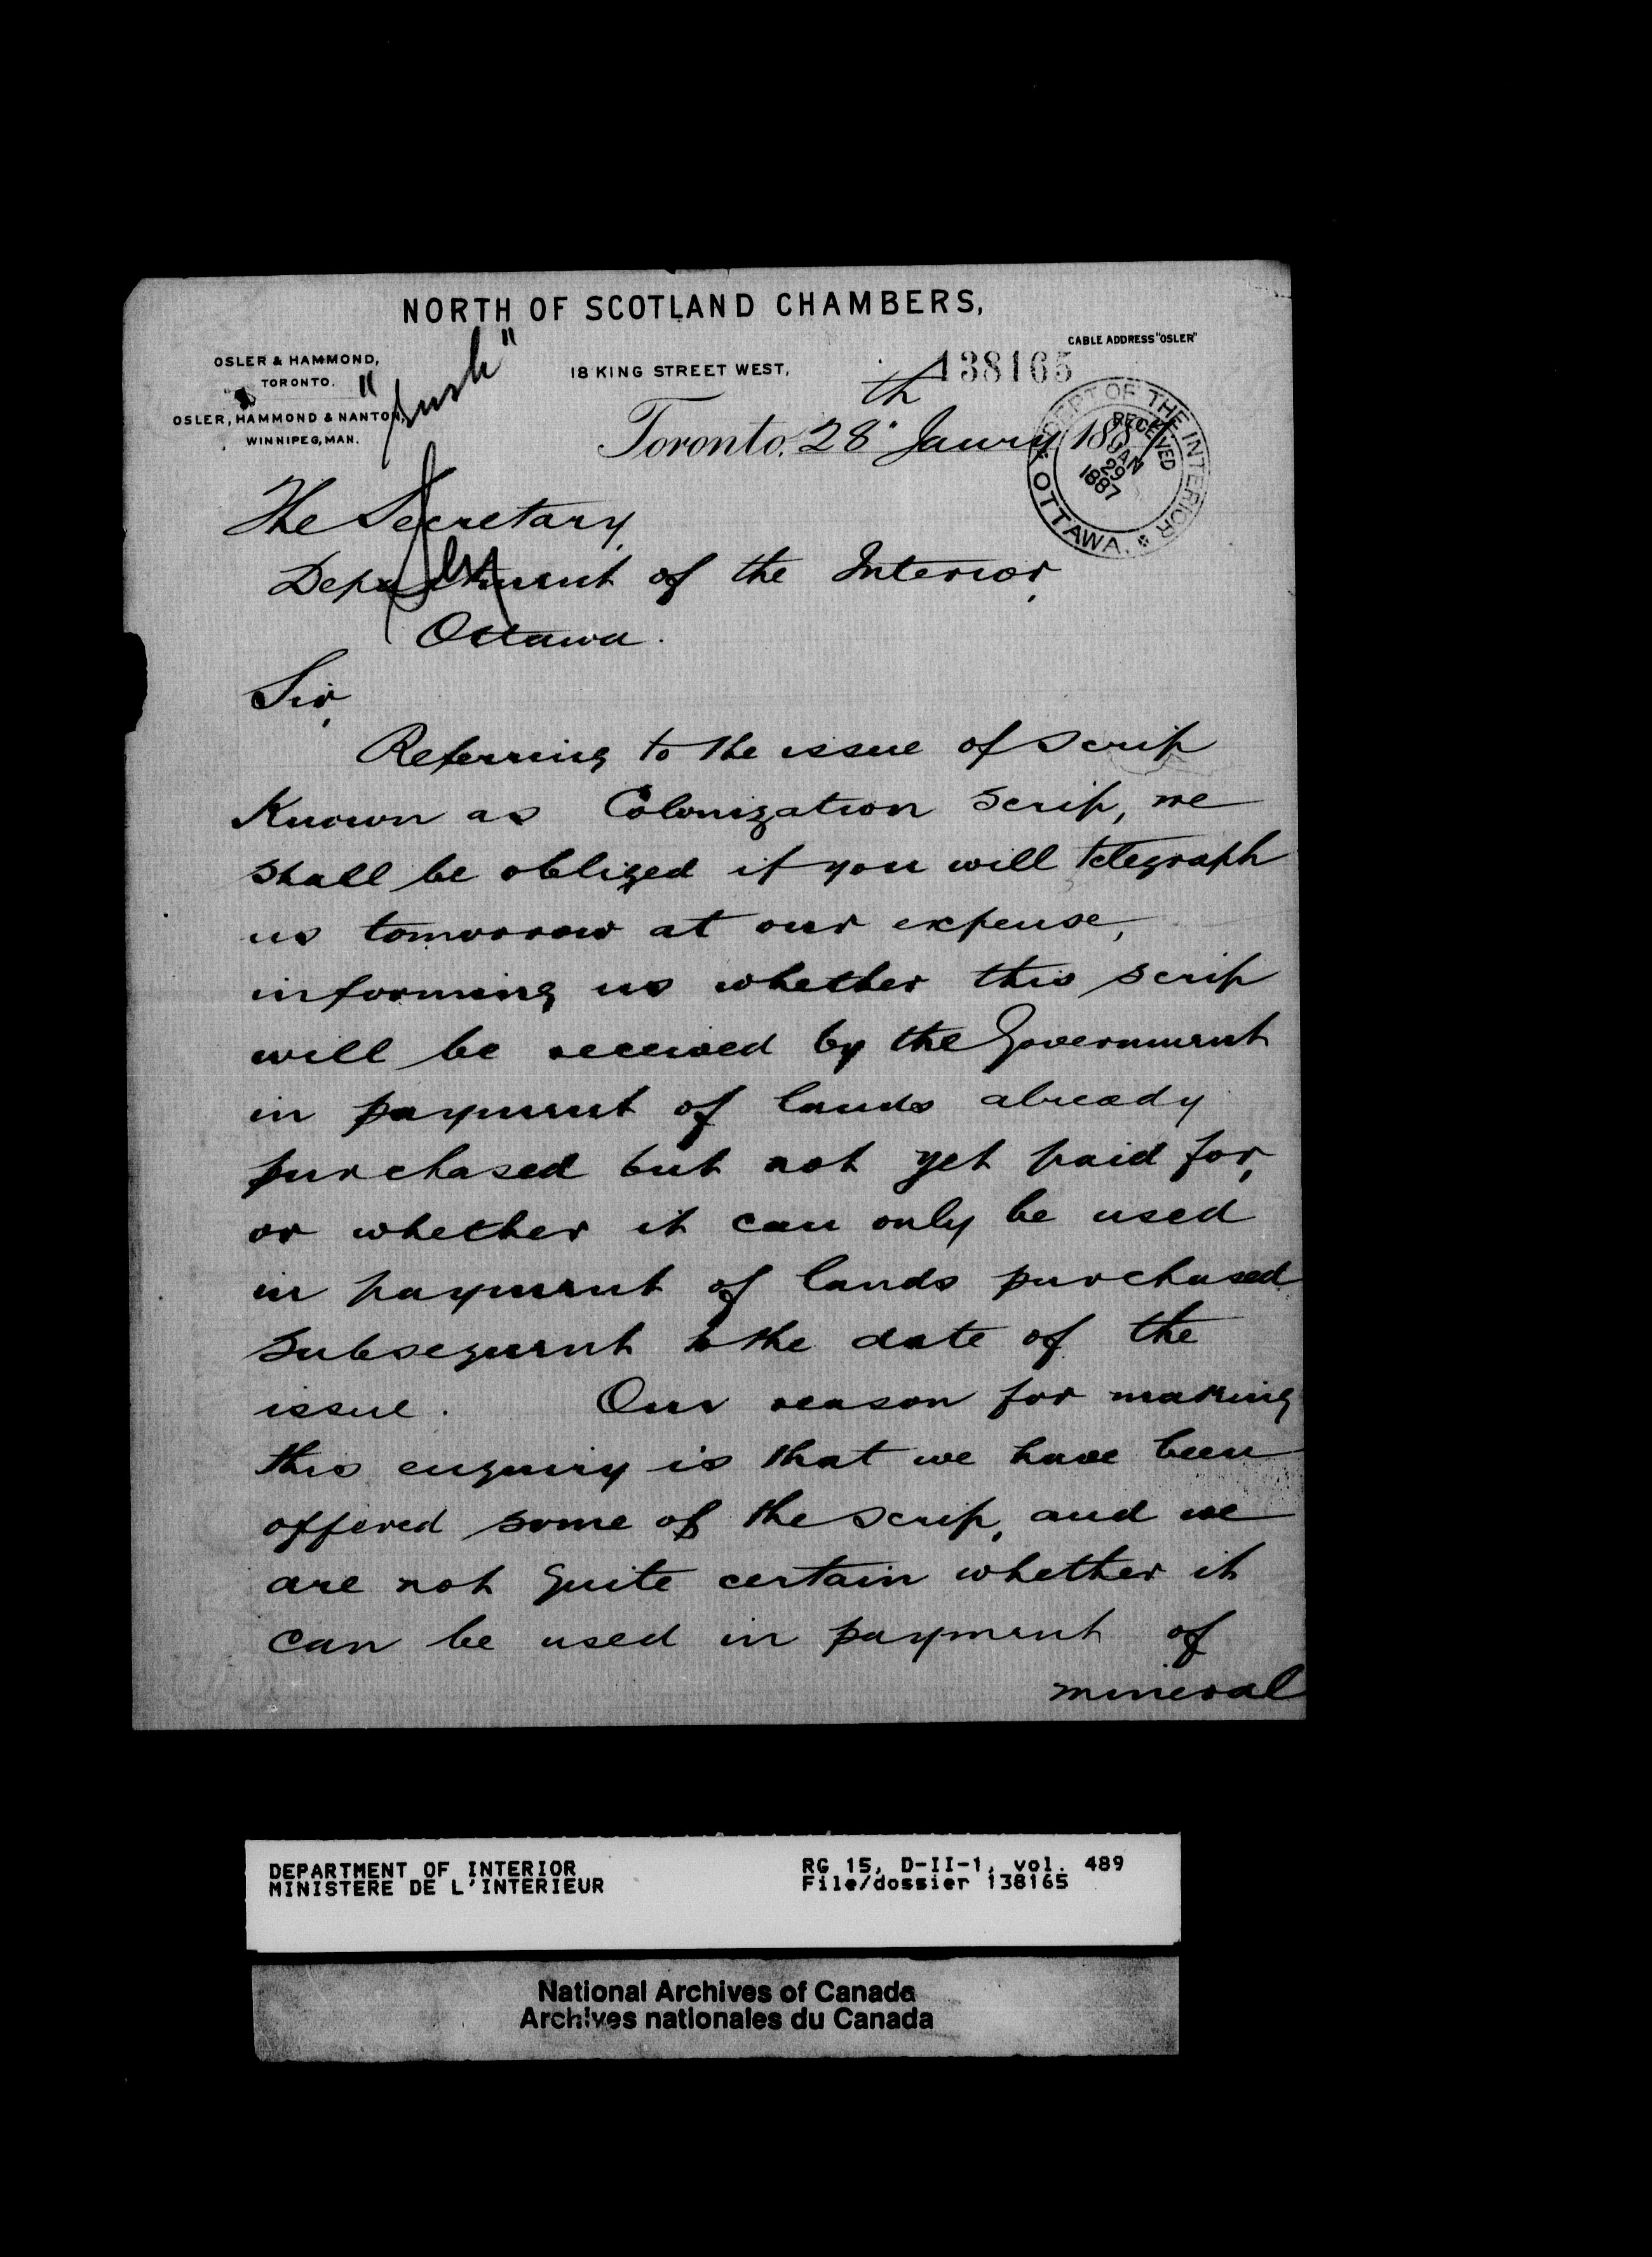 NORTH OF SCOTLAND CHAMBERS,
CABLE ADDRESS "OSLER"
OSLER & HAMMOND,
TORONTO.
OSLER, HAMMOND & NANTON,
WINNIPEG, MAN.
18 KING STREET WEST,
138165
Toronto, 28th Janury 1887
DEPT OF THE INTERIOR
OTTAWA.
RECEIVED
JAN
29
1887
The Secretary,
Department of the Interior,
Ottawa.
Sir,
Referring to the issue of scrip
Known as Colonization Scrip, we
shall be obliged if you will telegraph
us tomorrow at our expense,
informing us whether this scrip
will be received by the Government
in payment of lands already
purchased but not yet paid for,
or whether it can only be used
in payment of lands purchased
subsequent to the date of the
issue. Our reason for making
this enquiry is that we have been
offered some of the scrip, and we
are not quite certain whether it
can be used in payment of
mineral
DEPARTMENT OF INTERIOR
MINISTERE DE L'INTERIEUR
RG 15, D-II-1, vol. 489
File/dossier 138165
National Archives of Canada
Archives nationales du Canada